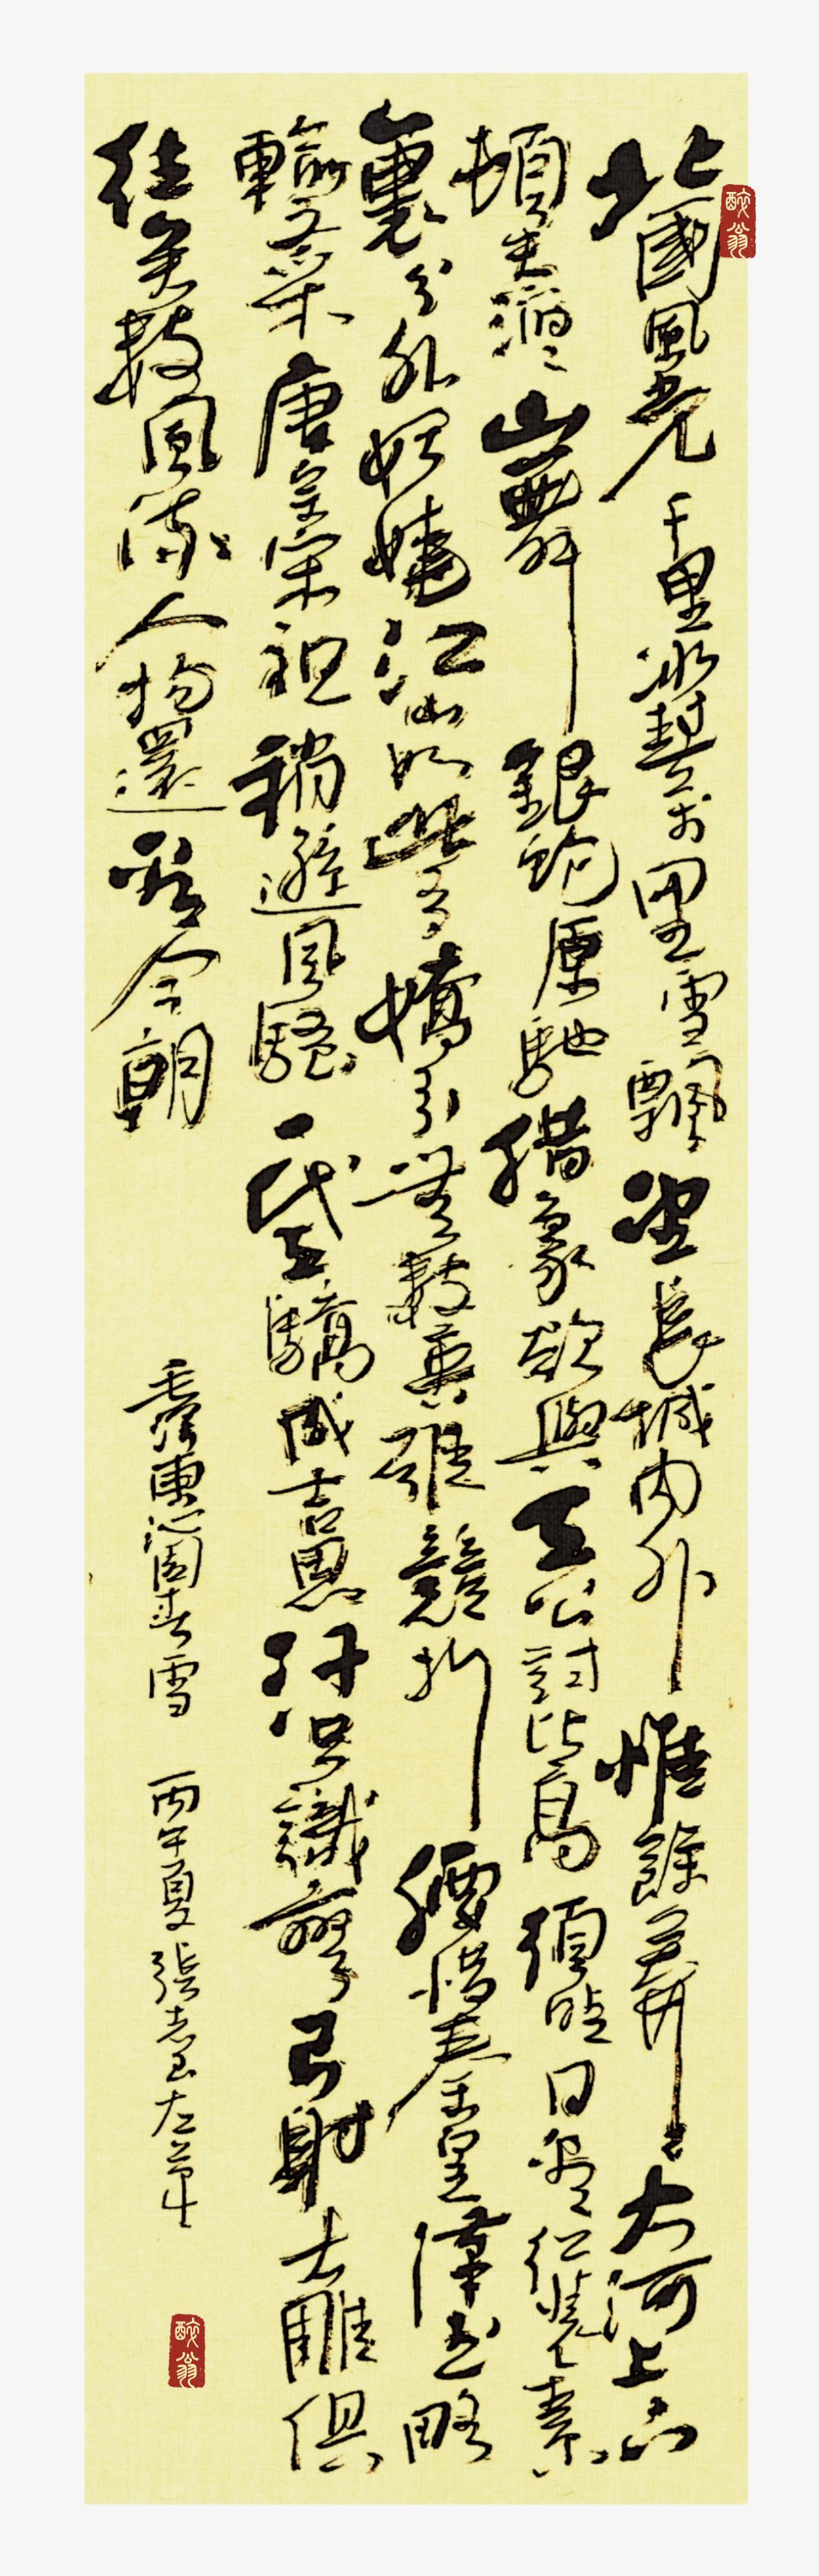 醉翁
北國風光千里冰封万里雪飄望長城內外惟餘莽莽大河上下
頓失滔滔山舞銀蛇原馳腊象欲與天公試比高須晴日看紅裝素
裹分外妖嬈江山如此多嬌引無數英雄競折腰惜秦皇漢武略
輸文采唐宗宋祖稍遜風騷一代天驕成吉思汗只識彎弓射大雕俱
往矣數風流人物還看今朝
毛澤東沁園春雪 丙午夏 張志左筆
醉翁